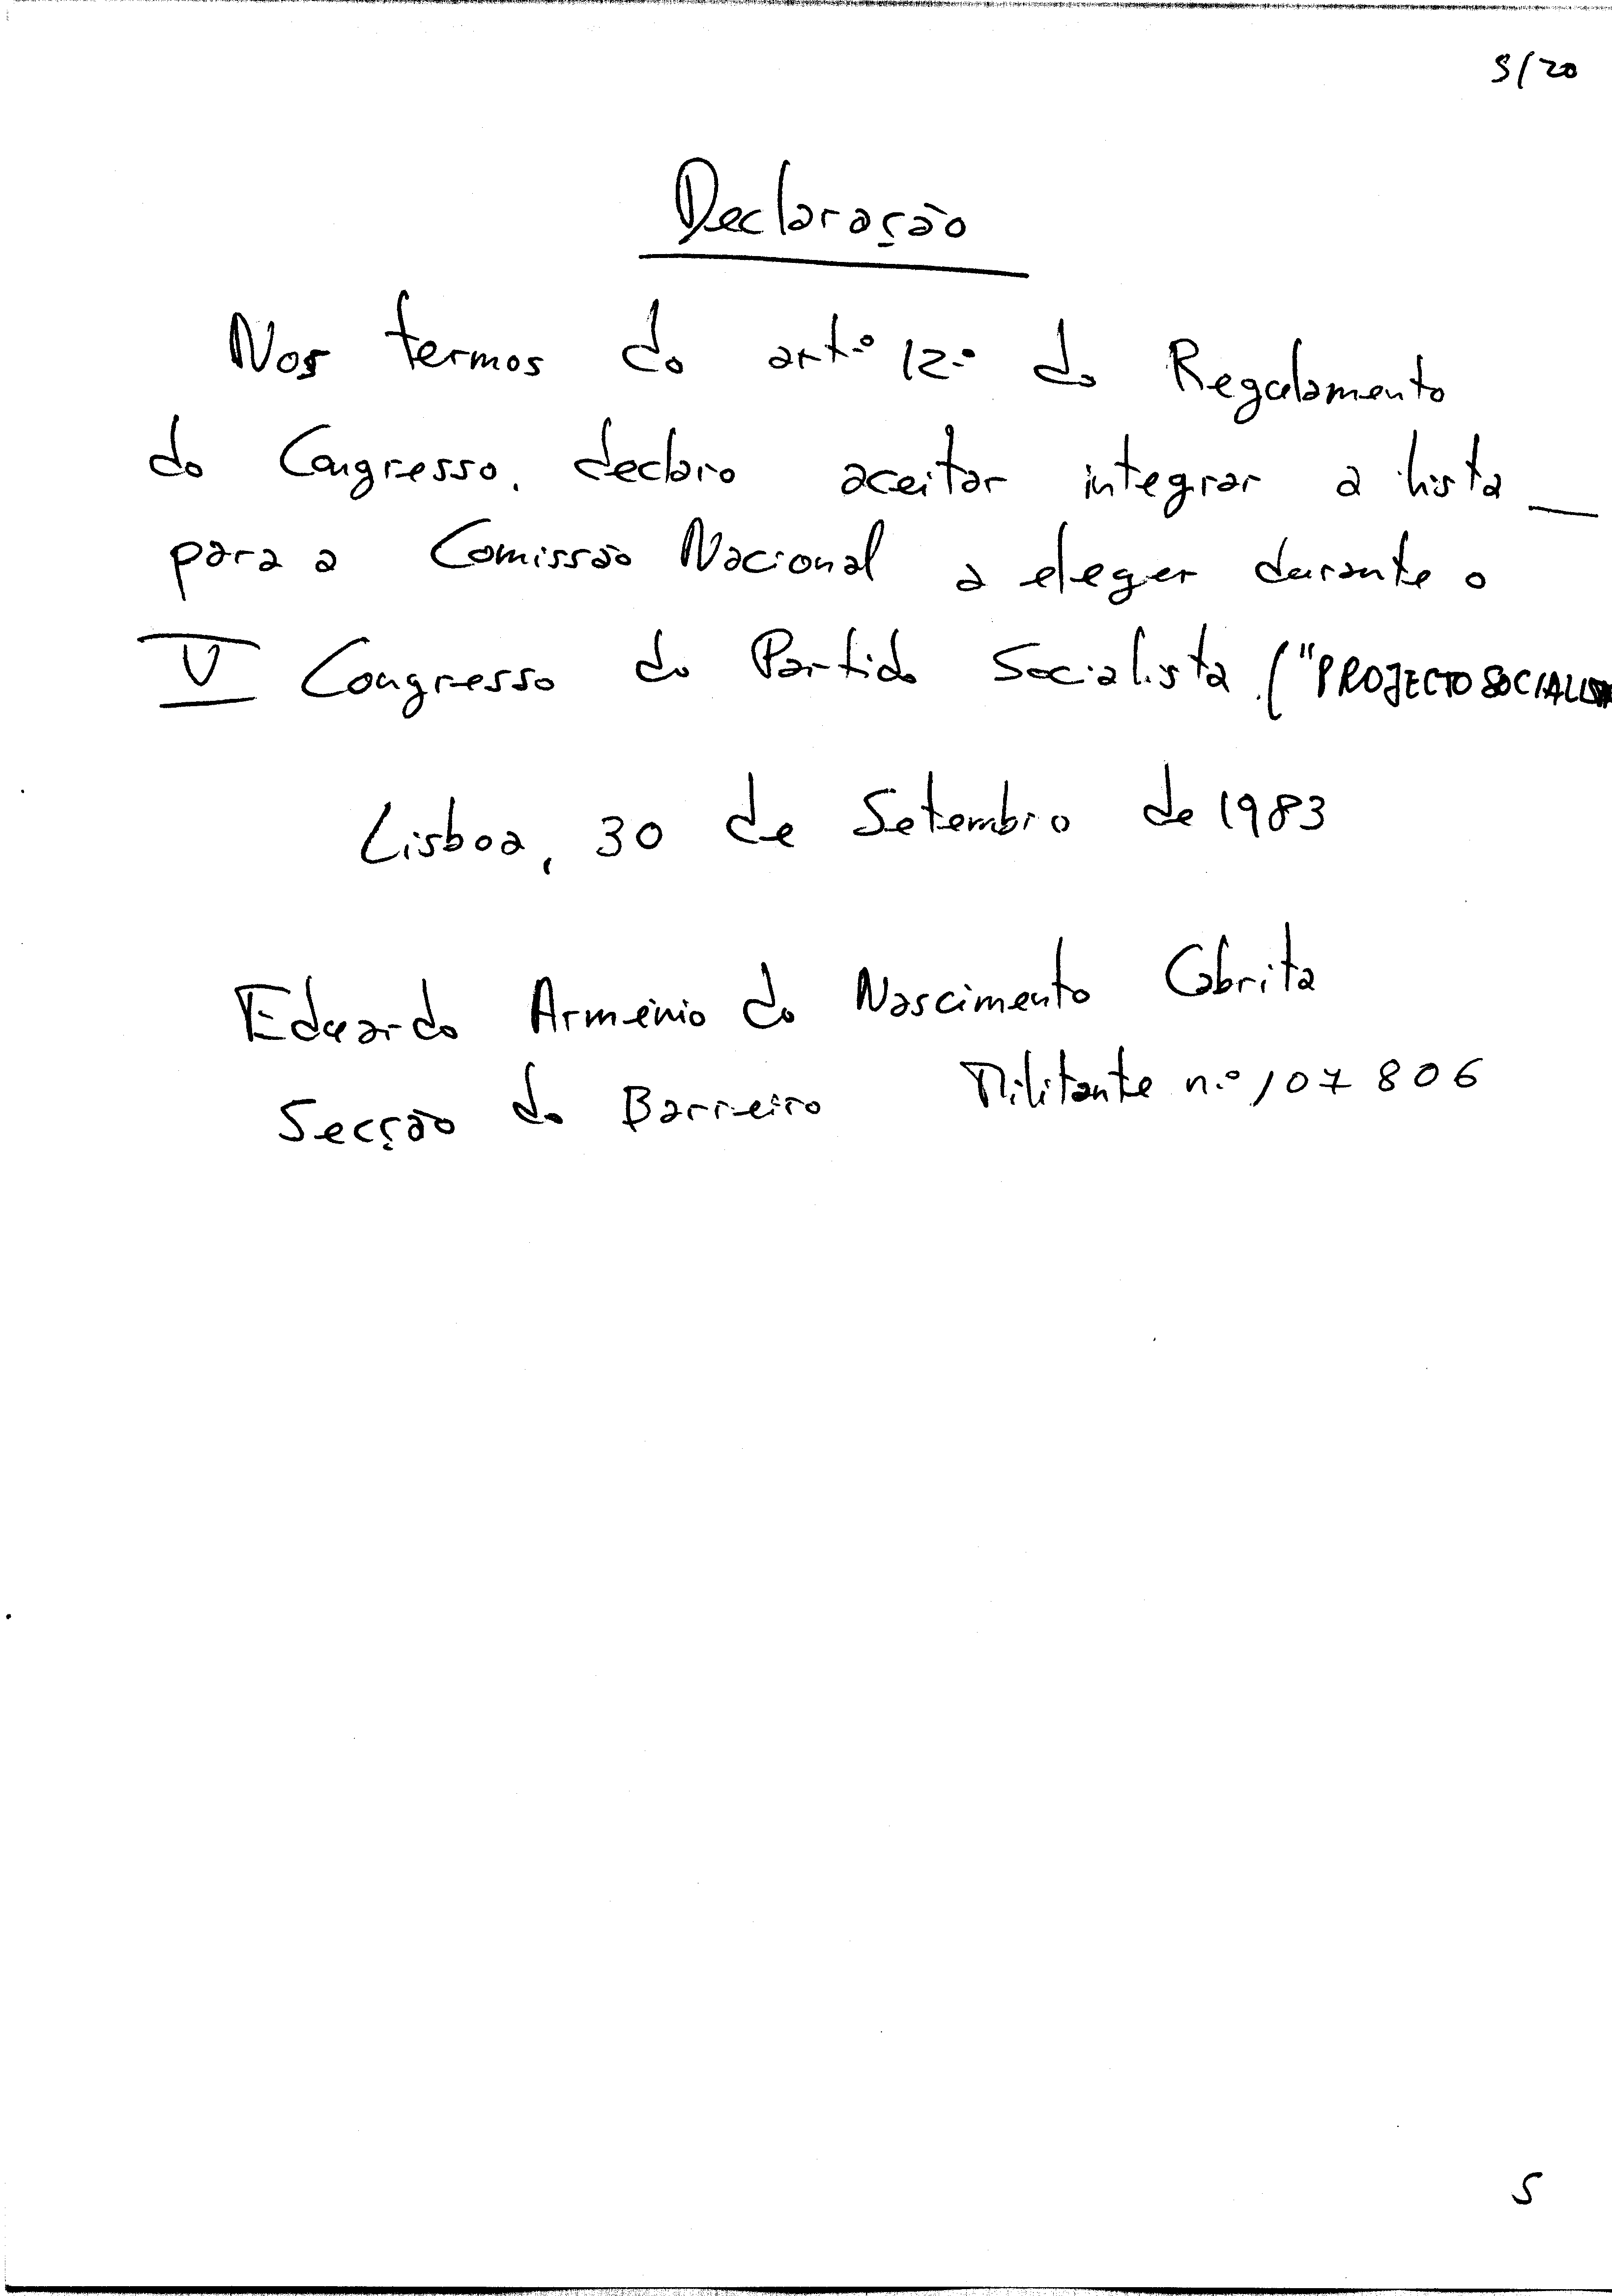 S/20
Declaração
Nos termos do art.º 12.º do Regulamento
do Congresso, declaro aceitar integrar a lista __
para a Comissão Nacional a eleger durante o
V Congresso do Partido Socialista. ("PROJECTO
Lisboa, 30 de Setembro de 1983
Eduardo Arménio do Nascimento Cabrita
Secção do Barreiro Militante n.º 107 806
S